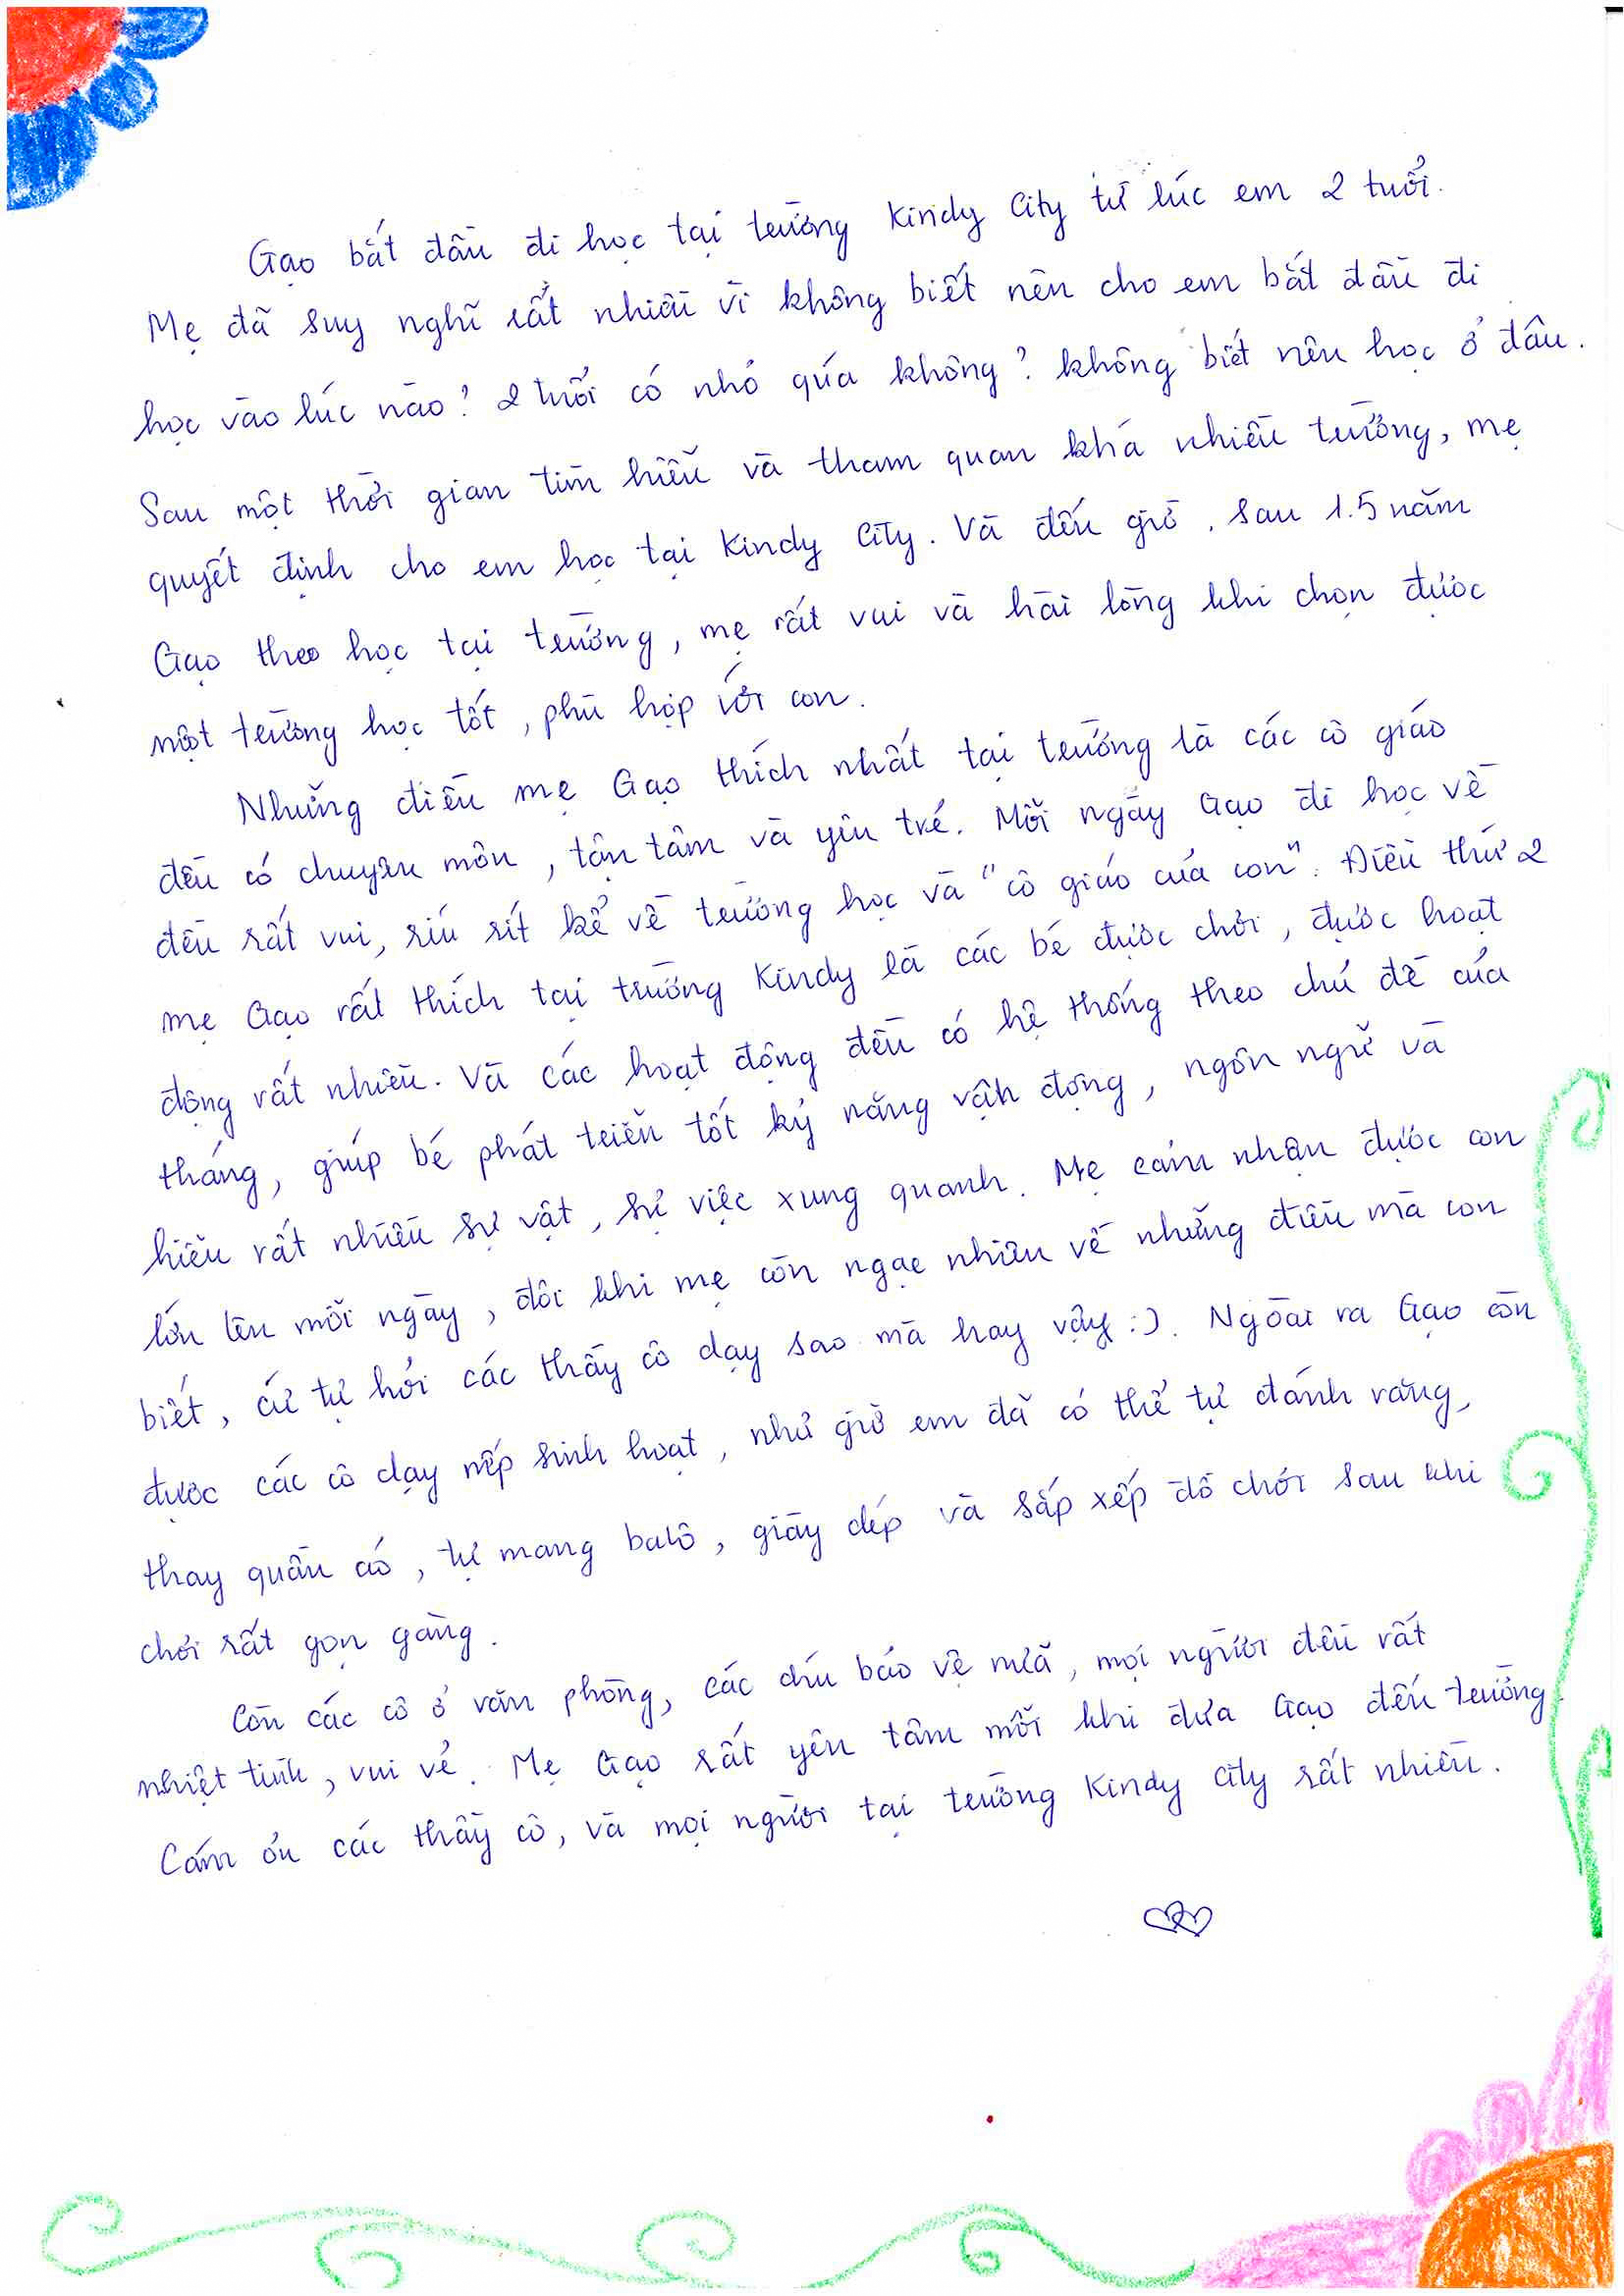 Gạo bắt đầu đi học tại trường Kindy City từ lúc em 2 tuổi.
Mẹ đã suy nghĩ rất nhiều vì không biết nên cho em bắt đầu đi
học vào lúc nào? 2 tuổi có nhỏ quá không? không biết nên học ở đâu.
Sau một thời gian tìm hiểu và tham quan khá nhiều trường, mẹ
quyết định cho em học tại Kindy City. Và đến giờ, sau 1.5 năm
Gạo theo học tại trường, mẹ rất vui và hài lòng khi chọn được
một trường học tốt, phù hợp với con.
Những điều mẹ Gạo thích nhất tại trường là các cô giáo
đều có chuyên môn, tận tâm và yêu trẻ. Mỗi ngày Gạo đi học về
đều rất vui, ríu rít kể về trường học và "cô giáo của con". Điều thứ 2
mẹ Gạo rất thích tại trường Kindy là các bé được chơi, được hoạt
động rất nhiều. Và các hoạt động đều có hệ thống theo chủ đề của
tháng, giúp bé phát triển tốt kỹ năng vận động, ngôn ngữ và
hiểu rất nhiều sự vật, sự việc xung quanh. Mẹ cảm nhận được con
lớn lên mỗi ngày, đôi khi mẹ còn ngạc nhiên về những điều mà con
biết, cứ tự hỏi các thầy cô dạy sao mà hay vậy :). Ngoài ra Gạo còn
được các cô dạy nếp sinh hoạt, như giờ em đã có thể tự đánh răng,
thay quần áo, tự mang balô, giày dép và sắp xếp đồ chơi sau khi
chơi rất gọn gàng.
Còn các cô ở văn phòng, các chú bảo vệ nữa, mọi người đều rất
nhiệt tình, vui vẻ. Mẹ Gạo rất yên tâm mỗi khi đưa Gạo đến trường.
Cám ơn các thầy cô, và mọi người tại trường Kindy City rất nhiều.